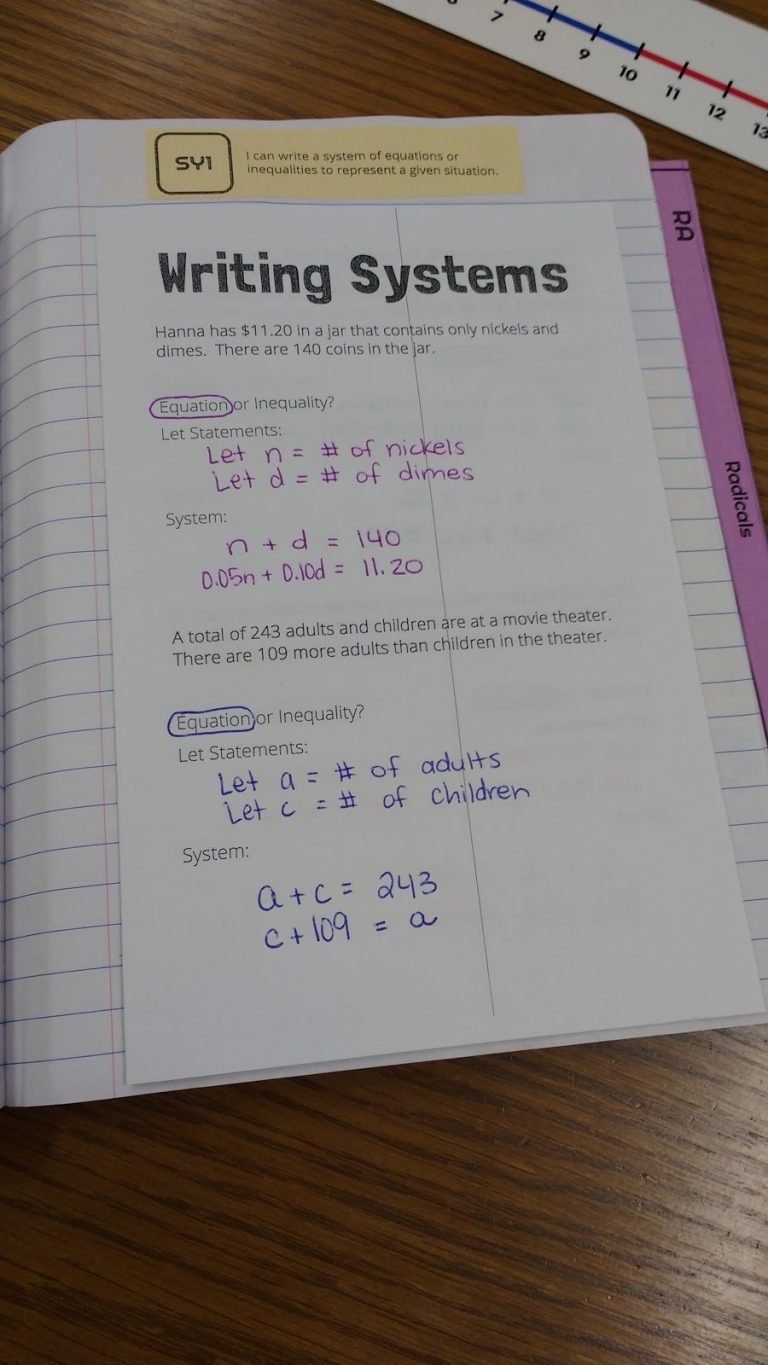 6 7 8 9 10 11 12 13
SY1
I can write a system of equations or
inequalities to represent a given situation.
RA
Writing Systems
Hanna has $11.20 in a jar that contains only nickels and
dimes. There are 140 coins in the jar.
Equation or Inequality?
Let Statements:
Let n = # of nickels
Let d = # of dimes
Radicals
System:
n + d = 140
0.05n + 0.10d = 11.20
A total of 243 adults and children are at a movie theater.
There are 109 more adults than children in the theater.
Equation or Inequality?
Let Statements:
Let a = # of adults
Let c = # of children
System:
a + c = 243
c + 109 = a